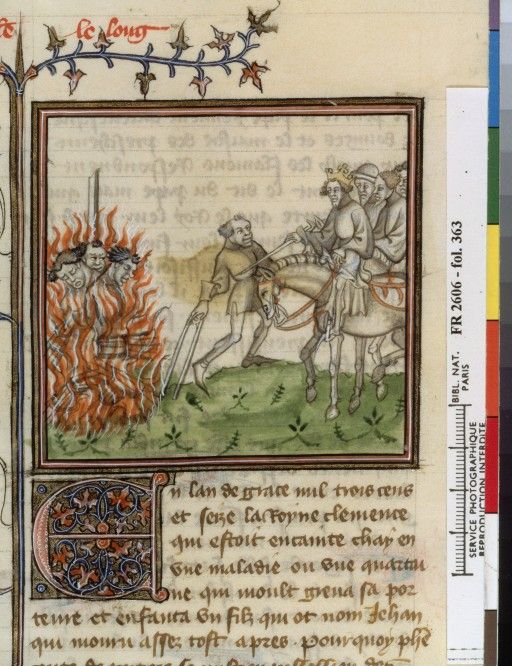 le loug
En lan de grace mil trois cens
et seize la Royne clemence
qui estoit encainte chay en
vne maladie ou vne quartai
ne qui moult greua sa por
teure et enfanta vn filz qui ot nom Jehan
qui mouru assez tost apres. pourquoy phe
BIBL. NAT. PARIS
FR 2606 - fol. 363
SERVICE PHOTOGRAPHIQUE
REPRODUCTION INTERDITE